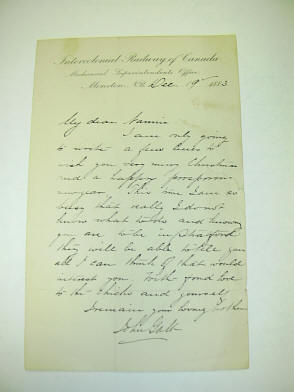 Intercolonial Railway of Canada
Mechanical Superintendents Office
Moncton, N.B. Dec 19th 1883
My dear Nannie
I am only going
to write a few lines to
wish you very merry Christmas
and a happy prosperous
newyear. This time I am so
busy that really I do not
know what to do and knowing
you are to be in Stratford
they will be able to tell you
all I can think of that would
interest you. With fond love
to the chicks and yourself
I remain your loving brother
John Galt